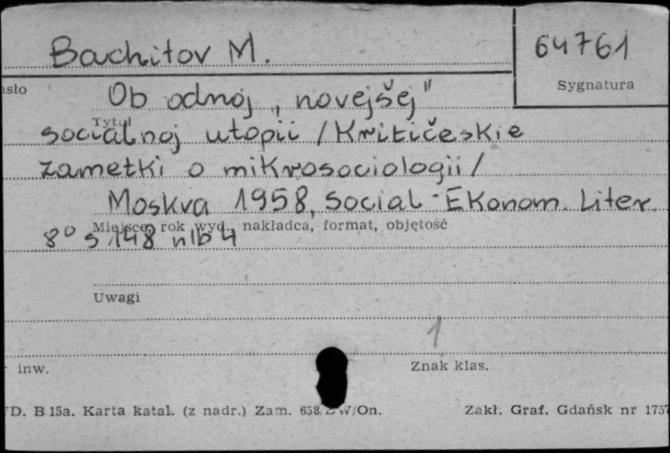 Bachitov M.
64761
Sygnatura
asło
Ob odnoj „novejšej"
Tytuł
socialnoj utopii /Kritičeskie
zametki o mikrosociologii/
Moskva 1958, Social-Ekonom. Liter.
Miejsce, rok wyd., nakładca, format, objętość
8° s 148 nlb 4
Uwagi
1
inw.
Znak klas.
D. B 15a. Karta katal. (z nadr.) Zam. W/On.
Zakł. Graf. Gdańsk nr 1757